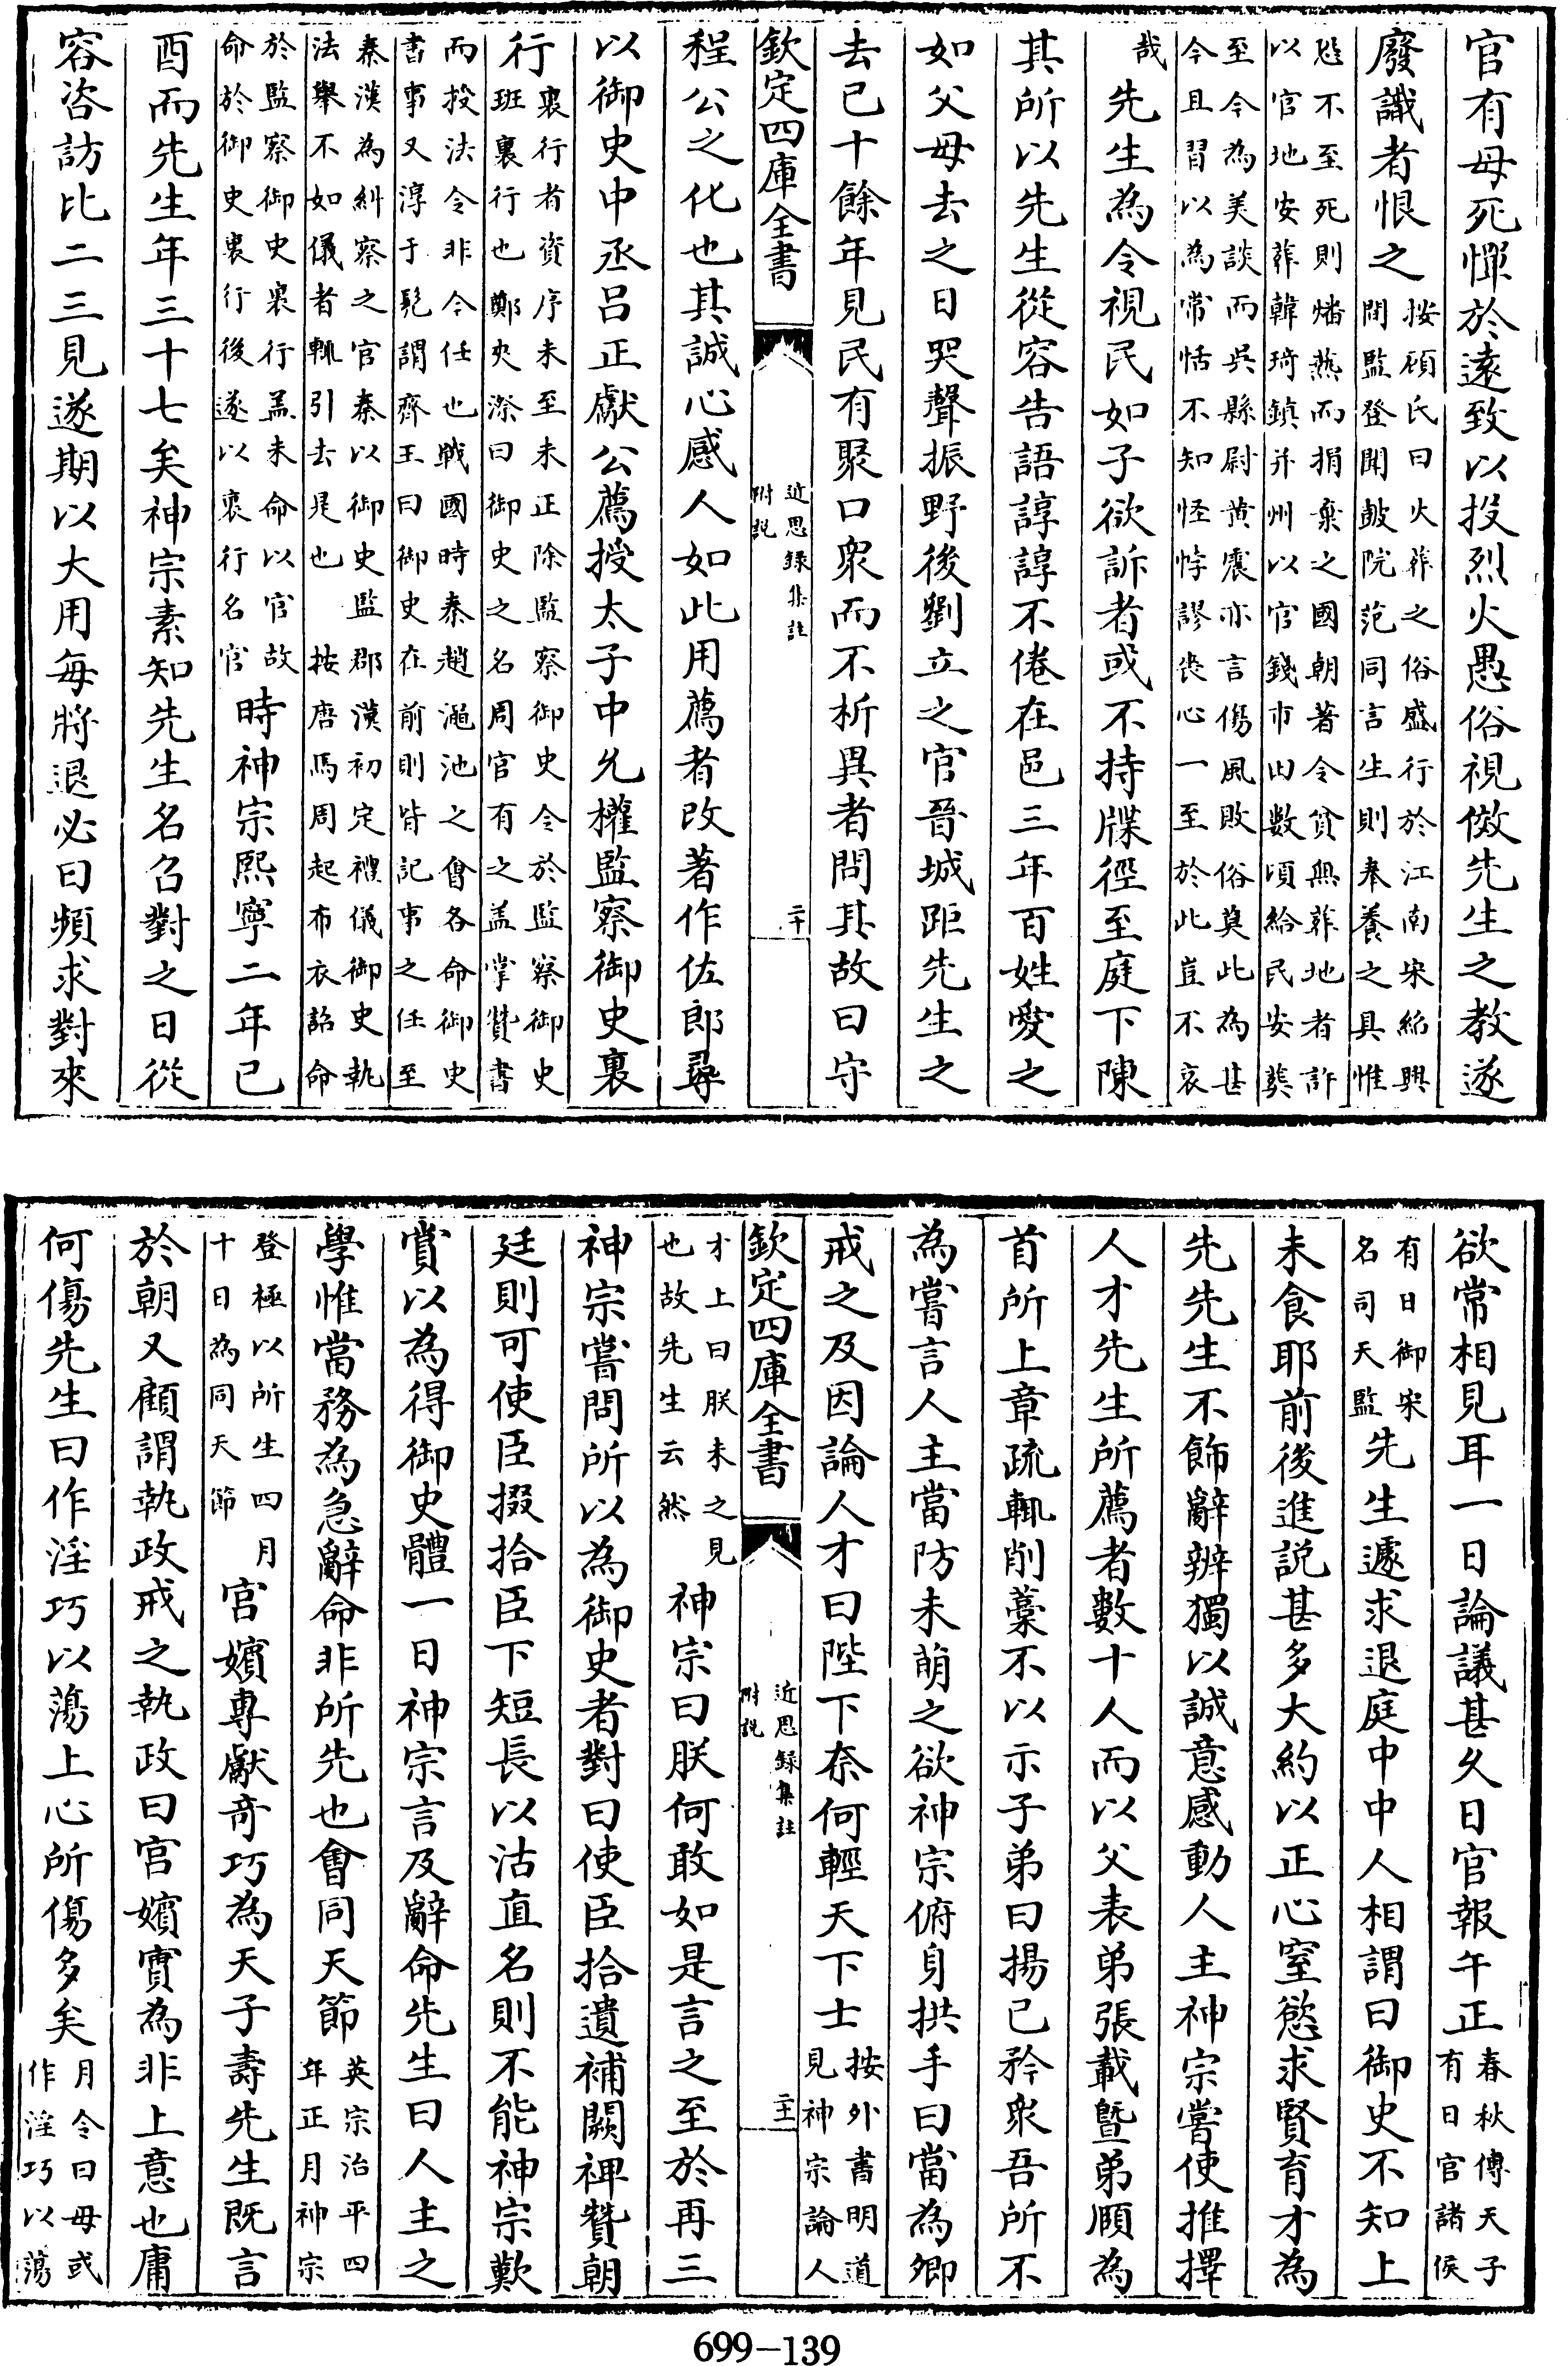 官有母死憚於遠致以投烈火愚俗視傚先生之教遂
廢識者恨之按顧氏曰火葬之俗盛行於江南宋紹興
閒監登聞鼓院范同言生則奉養之具惟
恐不至死則燔爇而捐棄之國朝著令貧無葬地者許
以官地安葬韓琦鎮并州以官錢市田數頃給民安葬
至今為美談而吳縣尉黄震亦言傷風敗俗莫此為甚
今且習以為常恬不知怪悖謬喪心一至於此豈不哀
哉先生為令視民如子欲訴者或不持牒徑至庭下陳
其所以先生從容告語諄諄不倦在邑三年百姓愛之
如父母去之日哭聲振野後劉立之官晉城距先生之
去已十餘年見民有聚口衆而不析異者問其故曰守
欽定四庫全書
近思録集註
附説
二十
程公之化也其誠心感人如此用薦者改著作佐郎尋
以御史中丞吕正獻公薦授太子中允權監察御史裏
行裏行者資序未至未正除監察御史令於監察御史
班裏行也鄭夾漈曰御史之名周官有之盖掌贊書
而投法令非今任也戰國時秦趙澠池之會各命御史
書事又淳于髠謂齊王曰御史在前則皆記事之任至
秦漢為糾察之官秦以御史監郡漢初定禮儀御史執
法舉不如儀者輒引去是也按唐馬周起布衣詔命
於監察御史裏行盖未命以官故
命於御史裏行後遂以裏行名官時神宗熙寧二年已
酉而先生年三十七矣神宗素知先生名召對之日從
容咨訪比二三見遂期以大用每將退必曰頻求對來
欲常相見耳一日論議甚久日官報午正春秋傳天子
有日官諸侯
有日御宋
名司天監先生遽求退庭中中人相謂曰御史不知上
未食耶前後進說甚多大約以正心窒慾求賢育才為
先先生不飾辭辨獨以誠意感動人主神宗嘗使推擇
人才先生所薦者數十人而以父表弟張載暨弟頤為
首所上章疏輒削藁不以示子弟曰揚已矜衆吾所不
為嘗言人主當防未萌之欲神宗俯身拱手曰當為卿
戒之及因論人才曰陛下奈何輕天下士按外書明道
見神宗論人
欽定四庫全書
近思録集註
附説
二十一
才上曰朕未之見
也故先生云然神宗曰朕何敢如是言之至於再三
神宗嘗問所以為御史者對曰使臣拾遺補闕裨贊朝
廷則可使臣掇拾臣下短長以沽直名則不能神宗歎
賞以為得御史體一日神宗言及辭命先生曰人主之
學惟當務為急辭命非所先也會同天節英宗治平四
年正月神宗
登極以所生四月
十日為同天節宫嬪專獻奇巧為天子壽先生既言
於朝又顧謂執政戒之執政曰宫嬪實為非上意也庸
何傷先生曰作淫巧以蕩上心所傷多矣月令曰毋或
作淫巧以蕩
699-139